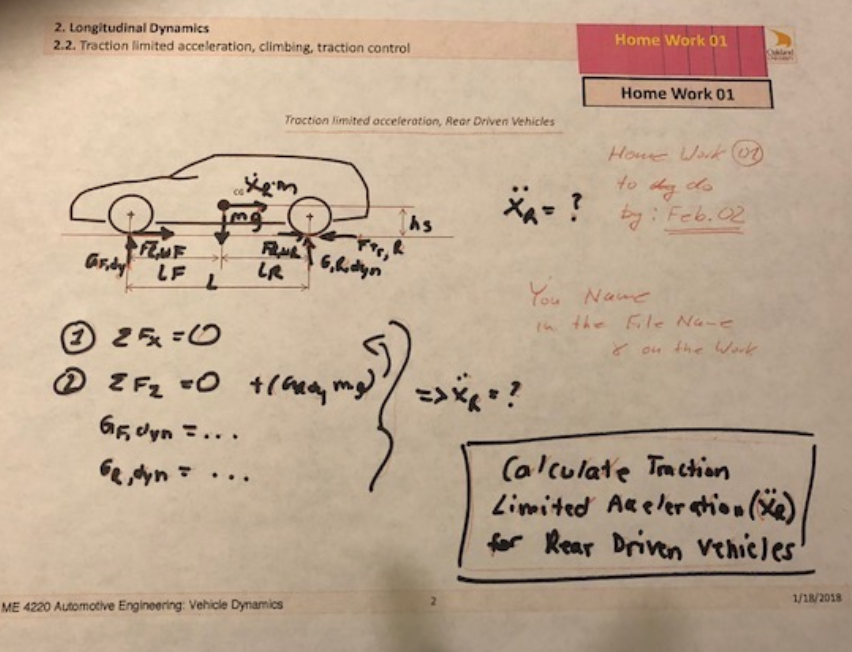 2. Longitudinal Dynamics
2.2. Traction limited acceleration, climbing, traction control
Home Work 01
Oakland
Home Work 01
Traction limited acceleration, Rear Driven Vehicles
Home Work 01
to do
by: Feb. 02
CG ẍR·m
mg
ẍR = ?
hs
GF,dyn FR,WF FR,WR FTr,R
LF L LR GR,dyn
You Name
in the File Name
& on the Work
① ΣFx = 0
② ΣFz = 0 +( mg)
=> ẍR = ?
GF,dyn = ...
GR,dyn = ...
Calculate Traction
Limited Acceleration (ẍR)
for Rear Driven Vehicles
ME 4220 Automotive Engineering: Vehicle Dynamics
2
1/18/2018